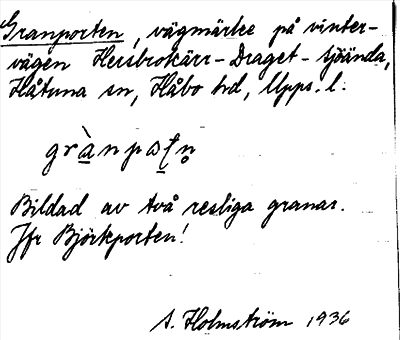 Granporten, vägmärke på vinter-
vägen Hersbrokärr - Draget - Sjöända,
Håtuna sn, Håbo hd, Upps. l.
Bildad av två resliga granar.
Jfr Björkporten!
A. Holmström 1936